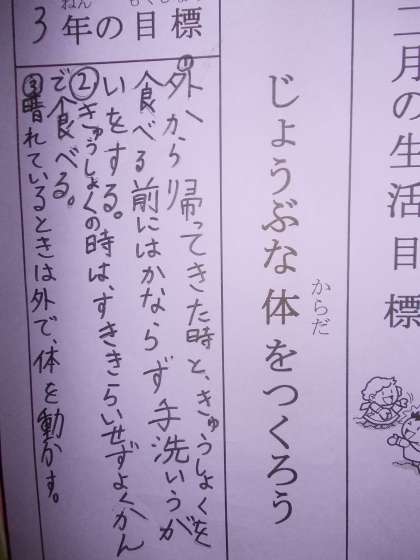 二月の生活目標
からだ
じょうぶな体をつくろう
ねん
3年の目標
①外から帰ってきた時と、きゅうしょくを
食べる前にはかならず手洗いうが
いをする。
②きゅうしょくの時は、すききらいせずよくかん
で食べる。
③晴れているときは外で、体を動かす。